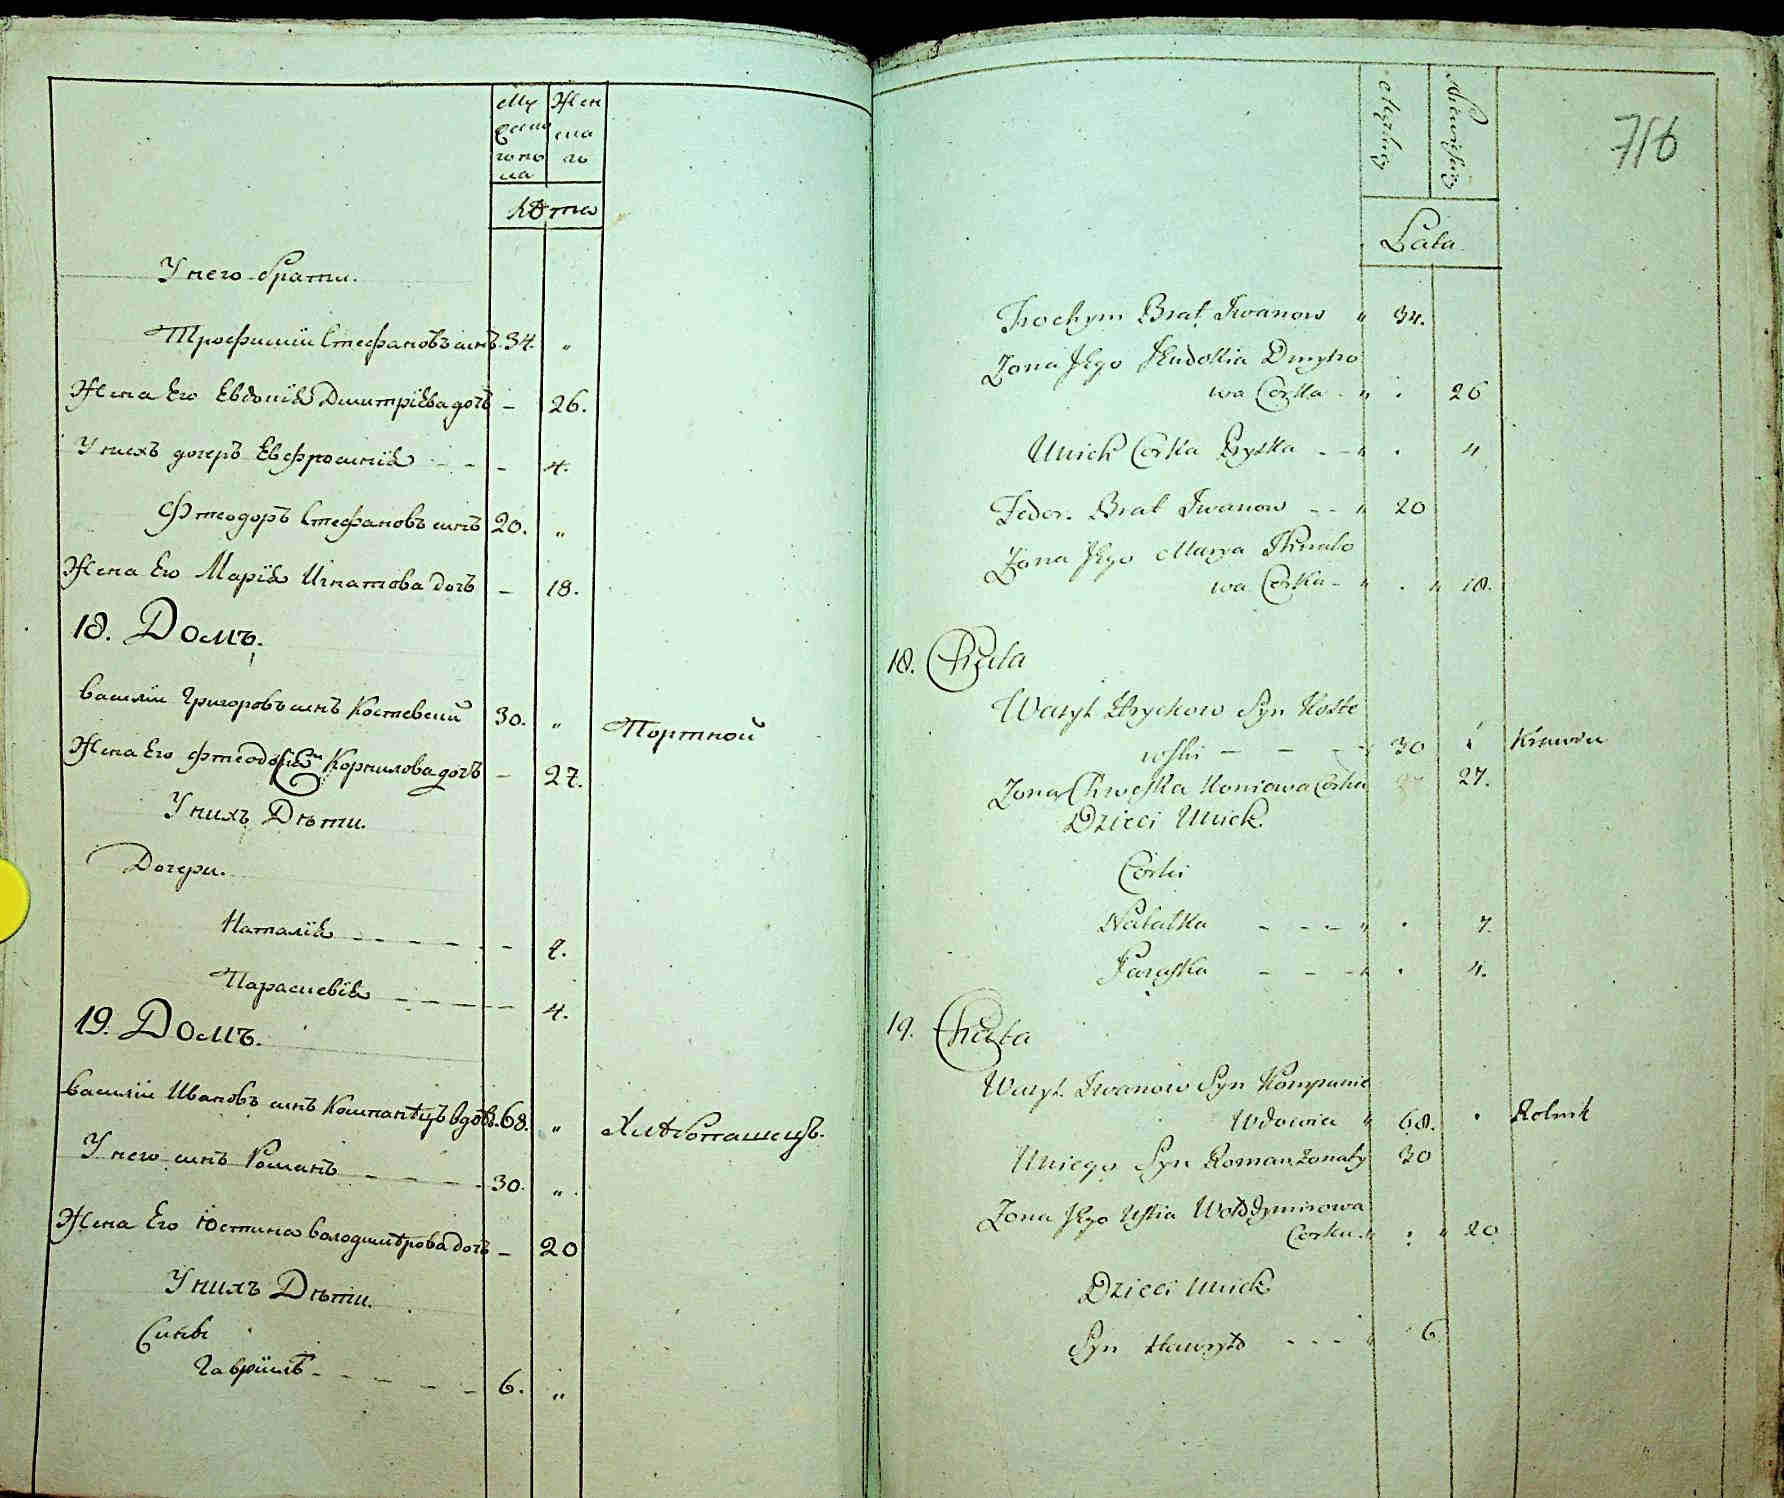 Му Жен
ческ ска
гопо го
ла
Лѣта
У него Брати.
Трофимій Стефановъ синъ. 34. „
Жена Его Евдокія Димитріева дочъ – 26.
У нихъ дочеръ Евфросинія - - - 4.
Фтеодоръ Стефановъ синъ 20. „
Жена Его Марія Игнатова дочъ – 18.
18. Домъ.
Василій Григоровъ синъ Костевскій 30. „ Портной
Жена Его Фтеодосія Корнилова дочъ – 27.
У нихъ Дѣти.
Дочери.
Наталія - - - - - - 7.
Парасневія - - - - - 4.
19. Домъ.
Василій Ивановъ синъ Компанѣцъ вдовъ. 68. „ Хлѣбопашецъ.
У него синъ Романъ - - - - - 30. „
Жена Его Юстина Володимѣрова дочъ – 20
У нихъ Дѣти.
Сини
Гавріилъ - - - - - 6. „
716
Męzkiej Niewieściej
Lata
Trochym Brat Iwanow „ 34.
Zona Jego Jewdokia Dmytro
wa Corka - „ . 26
Unich Corka Pryska - - „ . 4
Fedor. Brat Iwanow - - „ 20
Zona Jego Marya Ihnato
wa Corka - „ . „ 18.
18. Chata
Wasyl Hrychow Syn Koste
wski - - - 30 . Krawiec
Zona Chweska Korniowa Corka 27.
Dzieci Unich.
Corki
Natalka - - - „ . 7.
Paraska - - - „ . 4.
19. Chata
Wasyl Iwanow Syn Kompanie
Wdowiec „ 68. . Rolnik
Uniego Syn Roman Zonaty 30
Zona Jego Ustia Wołodymirowa
Corka. „ . „ 20
Dzieci Unich
Syn Hawryło - - - „ 6